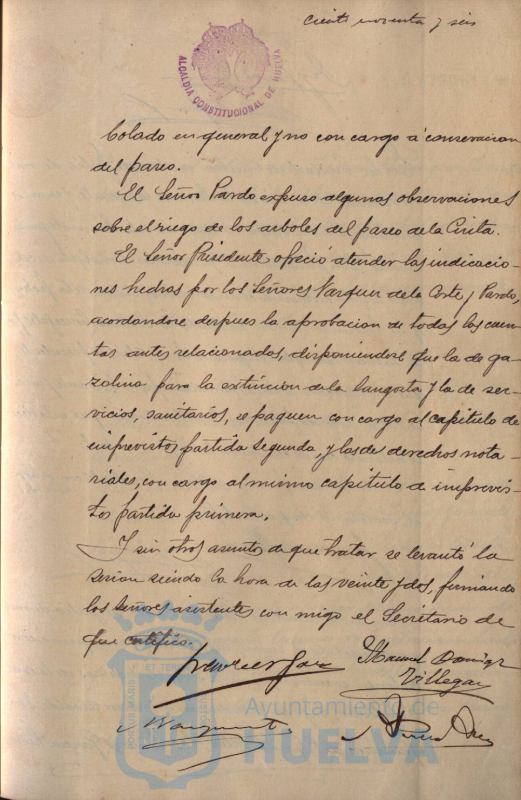 Ciento noventa y seis
ALCALDIA CONSTITUCIONAL DE HUELVA
bolado en general y no con cargo á conservacion
del paseo.
El Señor Pardo expuso algunas observaciones
sobre el riego de los arboles del paseo de la Cinta.
El Señor Presidente ofreció atender las indicacio-
nes hechas por los Señores Vazquez de la Corte y Pardo,
acordandose despues la aprobacion de todas las cuen-
tas antes relacionadas, disponiendose que la de ga-
zolina para la extincion de la langosta y la de ser-
vicios, sanitarios, se paguen con cargo al capitulo de
imprevistos partida segunda, y las de derechos nota-
riales, con cargo al mismo capitulo de imprevis-
tos partida primera.
Y sin otros asuntos de que tratar se levantó la
sesion siendo la hora de las veinte y dos, firmando
los Señores asistentes con migo el Secretario de
que certifico.
Manuel Doming
Villegas
PORTUS MARIS ET TERRAE
Ayuntamiento de
HUELVA